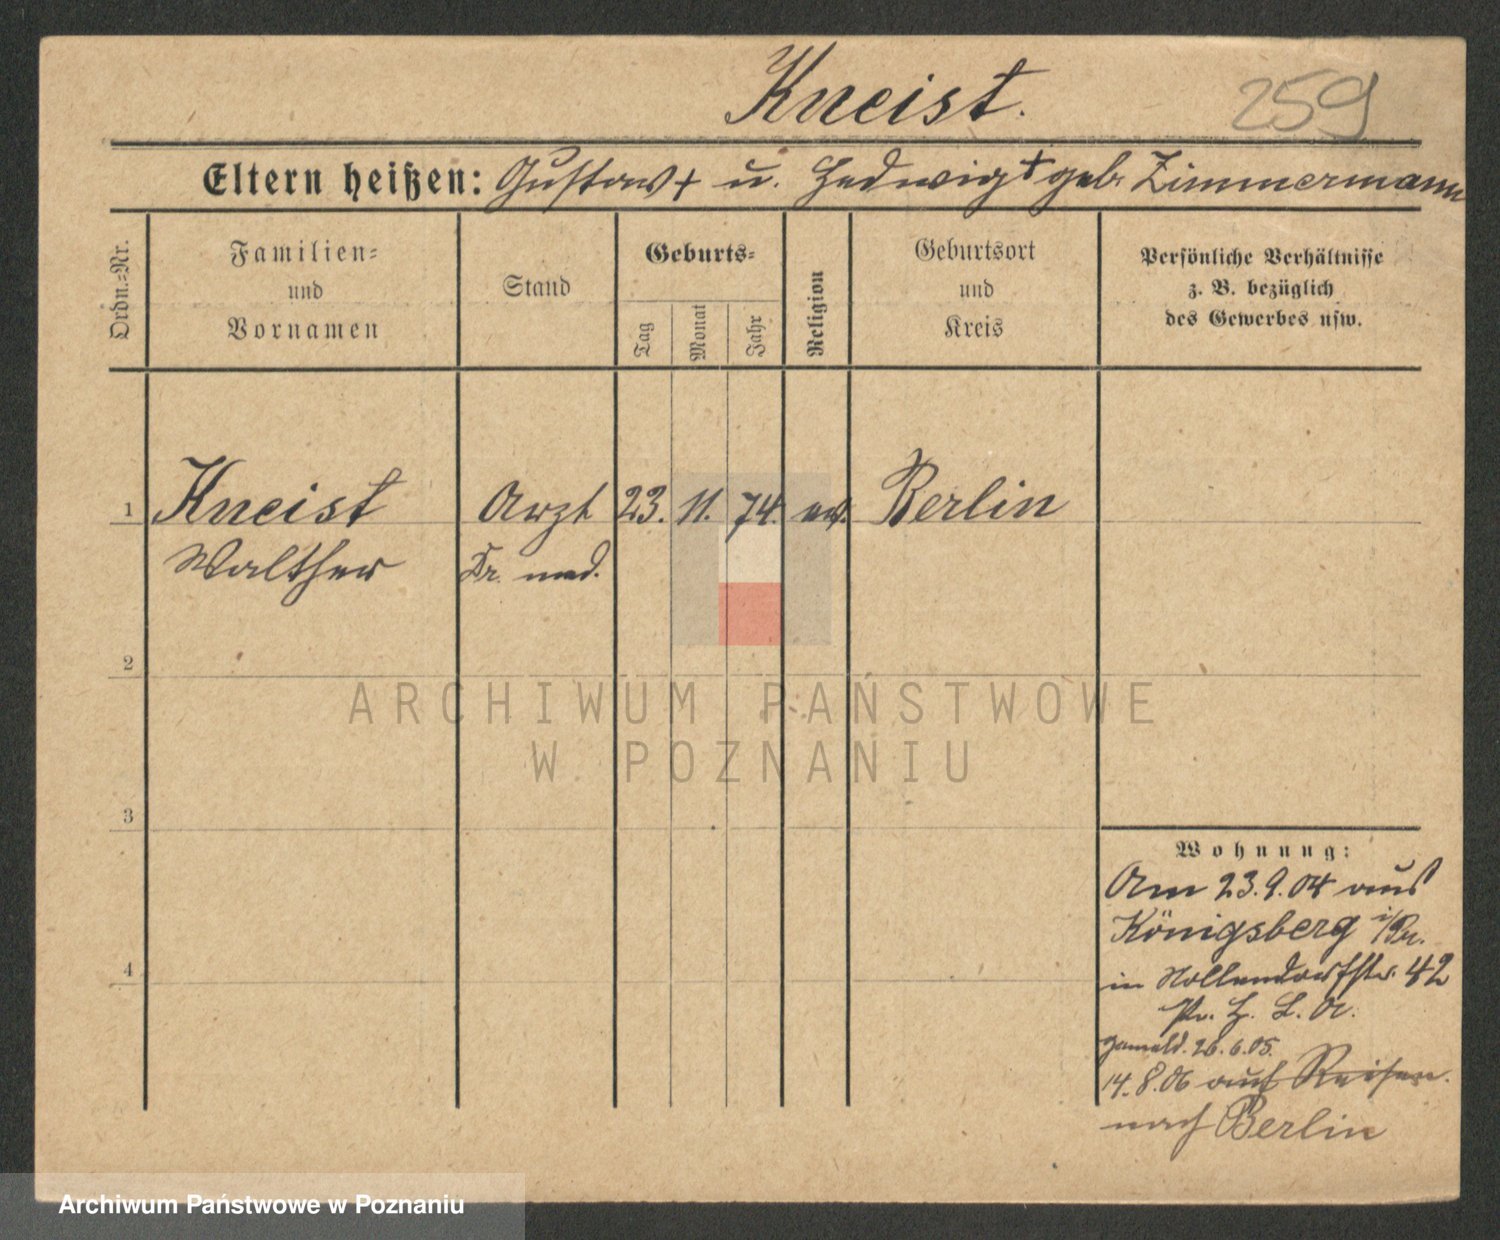 Kneist.
259
Eltern heißen: Gustav + u. Hedwig + geb. Zimmermann
Ordn.-Nr.
Familien-
und
Vornamen
Stand
Geburts-
Tag
Monat
Jahr
Religion
Geburtsort
und
Kreis
Persönliche Verhältnisse
z. B. bezüglich
des Gewerbes usw.
1 Kneist Arzt 23. 11. 74. ev. Berlin
Walther Dr. med.
2
ARCHIWUM PAŃSTWOWE
W POZNANIU
3
Wohnung:
Am 23.9.04 aus
Königsberg i/Pr.
4
in Nollendorfstr. 42
Pr. H. L. A.
gemeld. 26.6.05.
14.8.06 auf Reisen.
nach Berlin
Archiwum Państwowe w Poznaniu